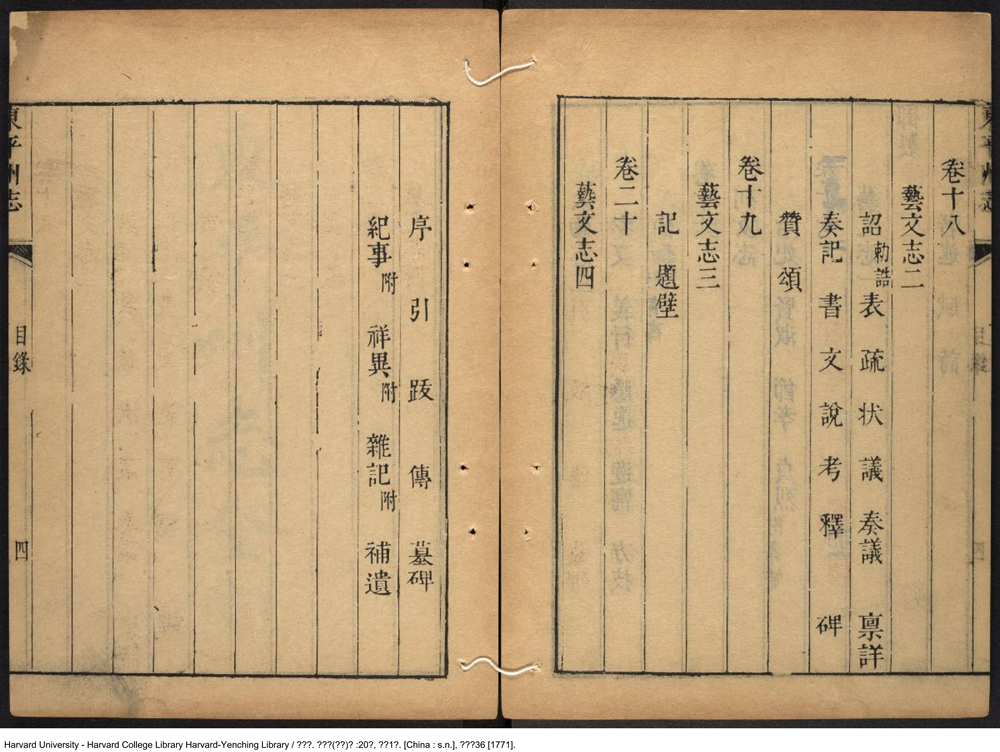 東平州志
目錄
四
卷十八
藝文志二
詔 勅誥 表 疏 狀 議 奏議 禀詳
奏記 書 文 說 考 釋 碑
贊 頌
卷十九
藝文志三
記 題壁
卷二十
藝文志四
序 引 跋 傳 墓碑
紀事附 祥異附 雜記附 補遺
東平州志
目錄
四
Harvard University - Harvard College Library Harvard-Yenching Library / ???. ???(??)? :20?, ??1?. [China : s.n.], ???36 [1771].